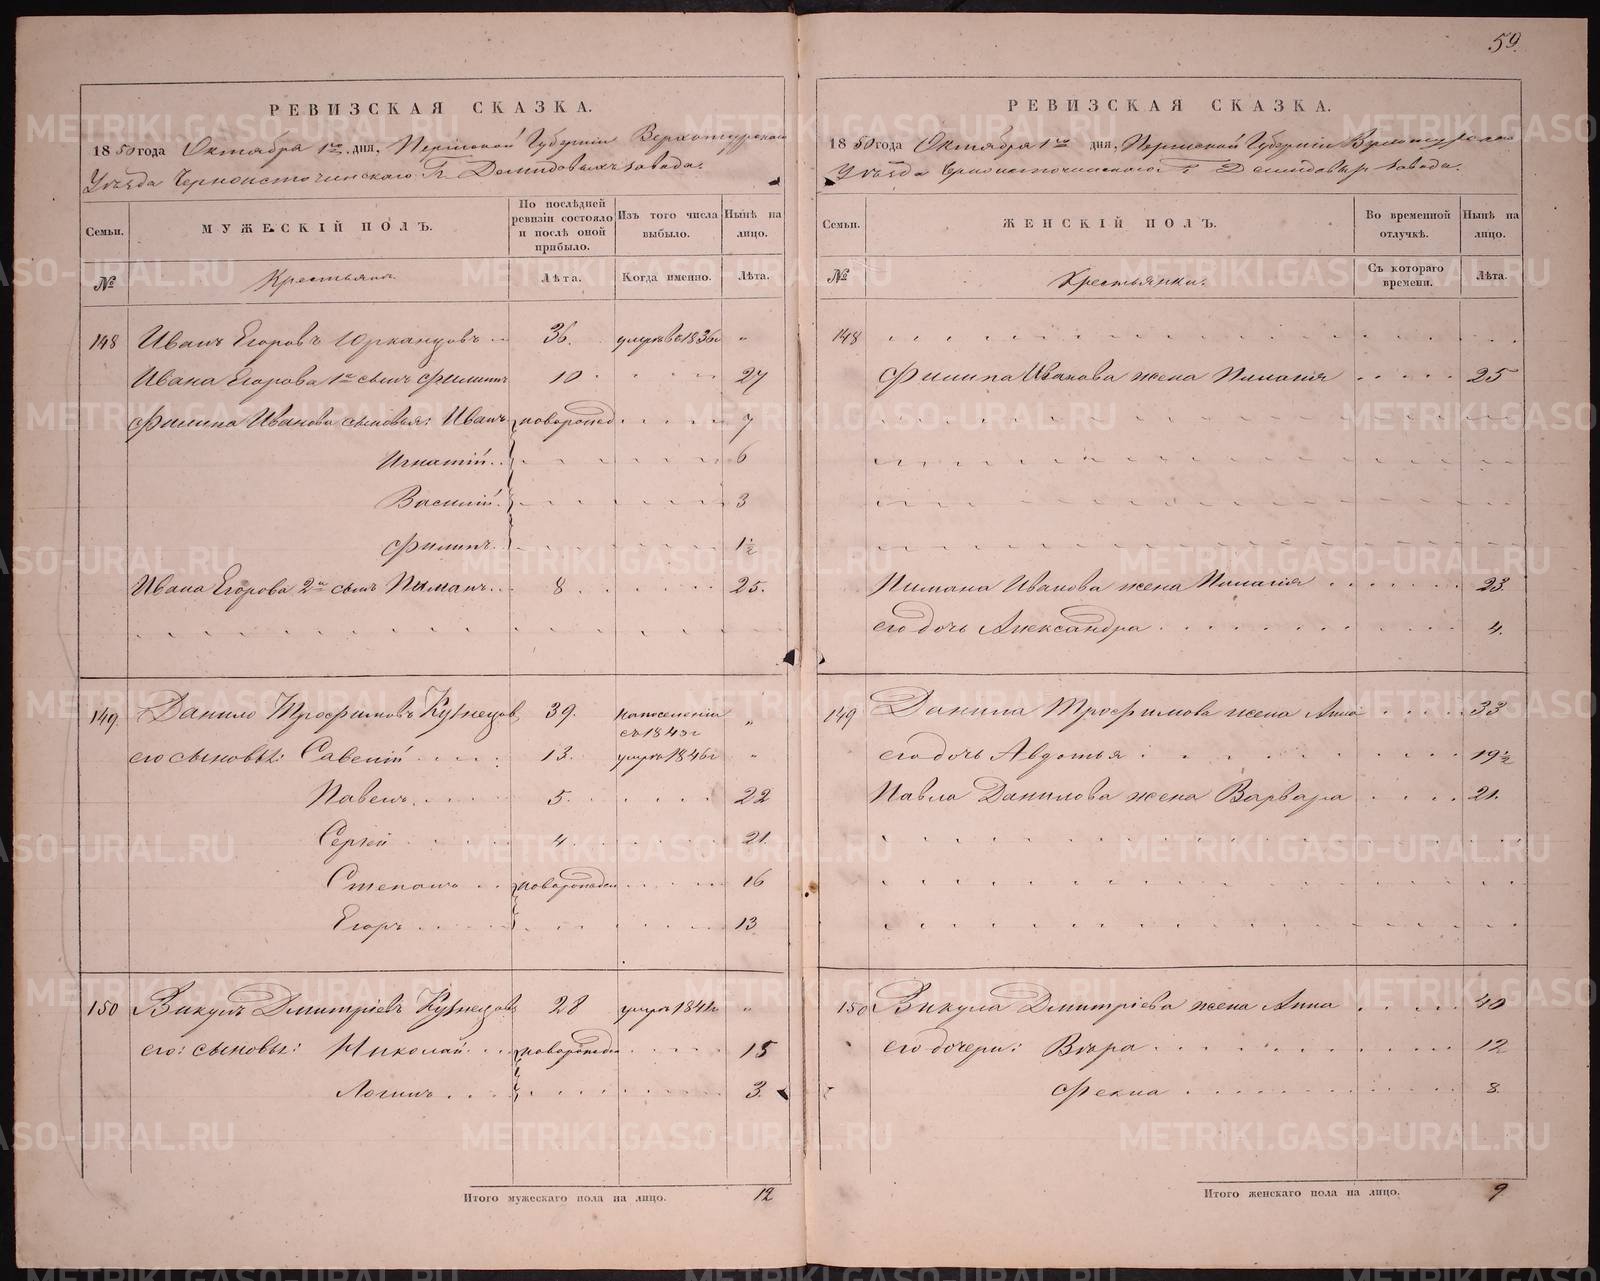 59.
РЕВИЗСКАЯ СКАЗКА.
1850 года Октября 1го дня, Пермской Губернiи Верхотурскаго
Уѣзда Черноисточинскаго Гг Демидовыхъ завода.
Семьи.
МУЖЕСКIЙ ПОЛЪ.
По послѣдней ревизiи состояло и послѣ оной прибыло.
Изъ того числа выбыло.
Нынѣ на лицо.
№
Крестьяне.
Лѣта.
Когда именно.
Лѣта.
148 Иванъ Егоровъ Юрканцовъ 36. умръ въ 1836г "
Ивана Егорова 1й сынъ Филипъ 10 27
Филипа Иванова сыновья: Иванъ новорожд 7
Игнатiй 6
Василiй 3
Филипъ 1½
Ивана Егорова 2й сынъ Пиманъ 8 25.
149 Данило Трофимовъ Кузнецов 39. на поселенiи съ 1843г "
его сыновья: Савелiй 13. умръ 1846г "
Павелъ 5. 22
Сергей 4 21
Степанъ новорожден 16
Егоръ 13
150 Викулъ Дмитрiевъ Кузнецовъ 28 умръ "
его: сыновья: Николай новорожден 15
Логинъ 3.
Итого мужескаго пола на лицо. 12
РЕВИЗСКАЯ СКАЗКА.
1850 года Октября 1го дня, Пермской Губернiи Верхотурскаго
Уѣзда Черноисточинскаго Гг Демидовыхъ завода.
Семьи.
ЖЕНСКIЙ ПОЛЪ.
Во временной отлучкѣ.
Нынѣ на лицо.
№
Крестьянки.
Съ котораго времени.
Лѣта.
148
Филипа Иванова жена Пилагiя 25
Пимана Иванова жена Пилагiя 23.
его дочь Александра 4.
149 Данила Трофимова жена Анна 33
его дочь Авдотья 19½
Павла Данилова жена Варвара 21.
150 Викула Дмитрiева жена Анна 40
его дочери: Вѣра 12
Фекла 8.
Итого женскаго пола на лицо. 9
METRIKI.GASO-URAL.RU